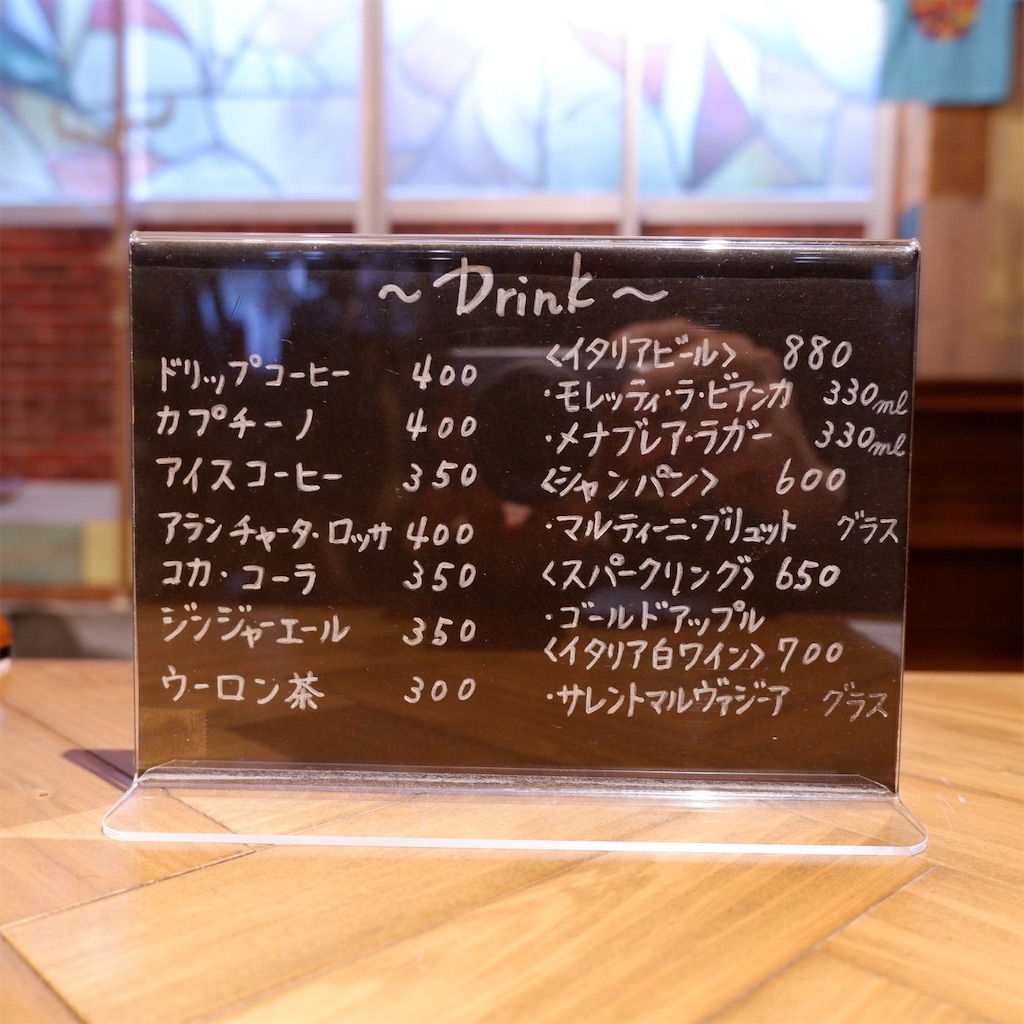 ～Drink～
ドリップコーヒー 400
カプチーノ 400
アイスコーヒー 350
アランチャータ・ロッサ 400
コカ・コーラ 350
ジンジャーエール 350
ウーロン茶 300
<イタリアビール> 880
・モレッティ・ラ・ビアンカ 330ml
・メナブレア・ラガー 330ml
<シャンパン> 600
・マルティーニ・ブリュット グラス
<スパークリング> 650
・ゴールドアップル
<イタリア白ワイン> 700
・サレントマルヴァジーア グラス